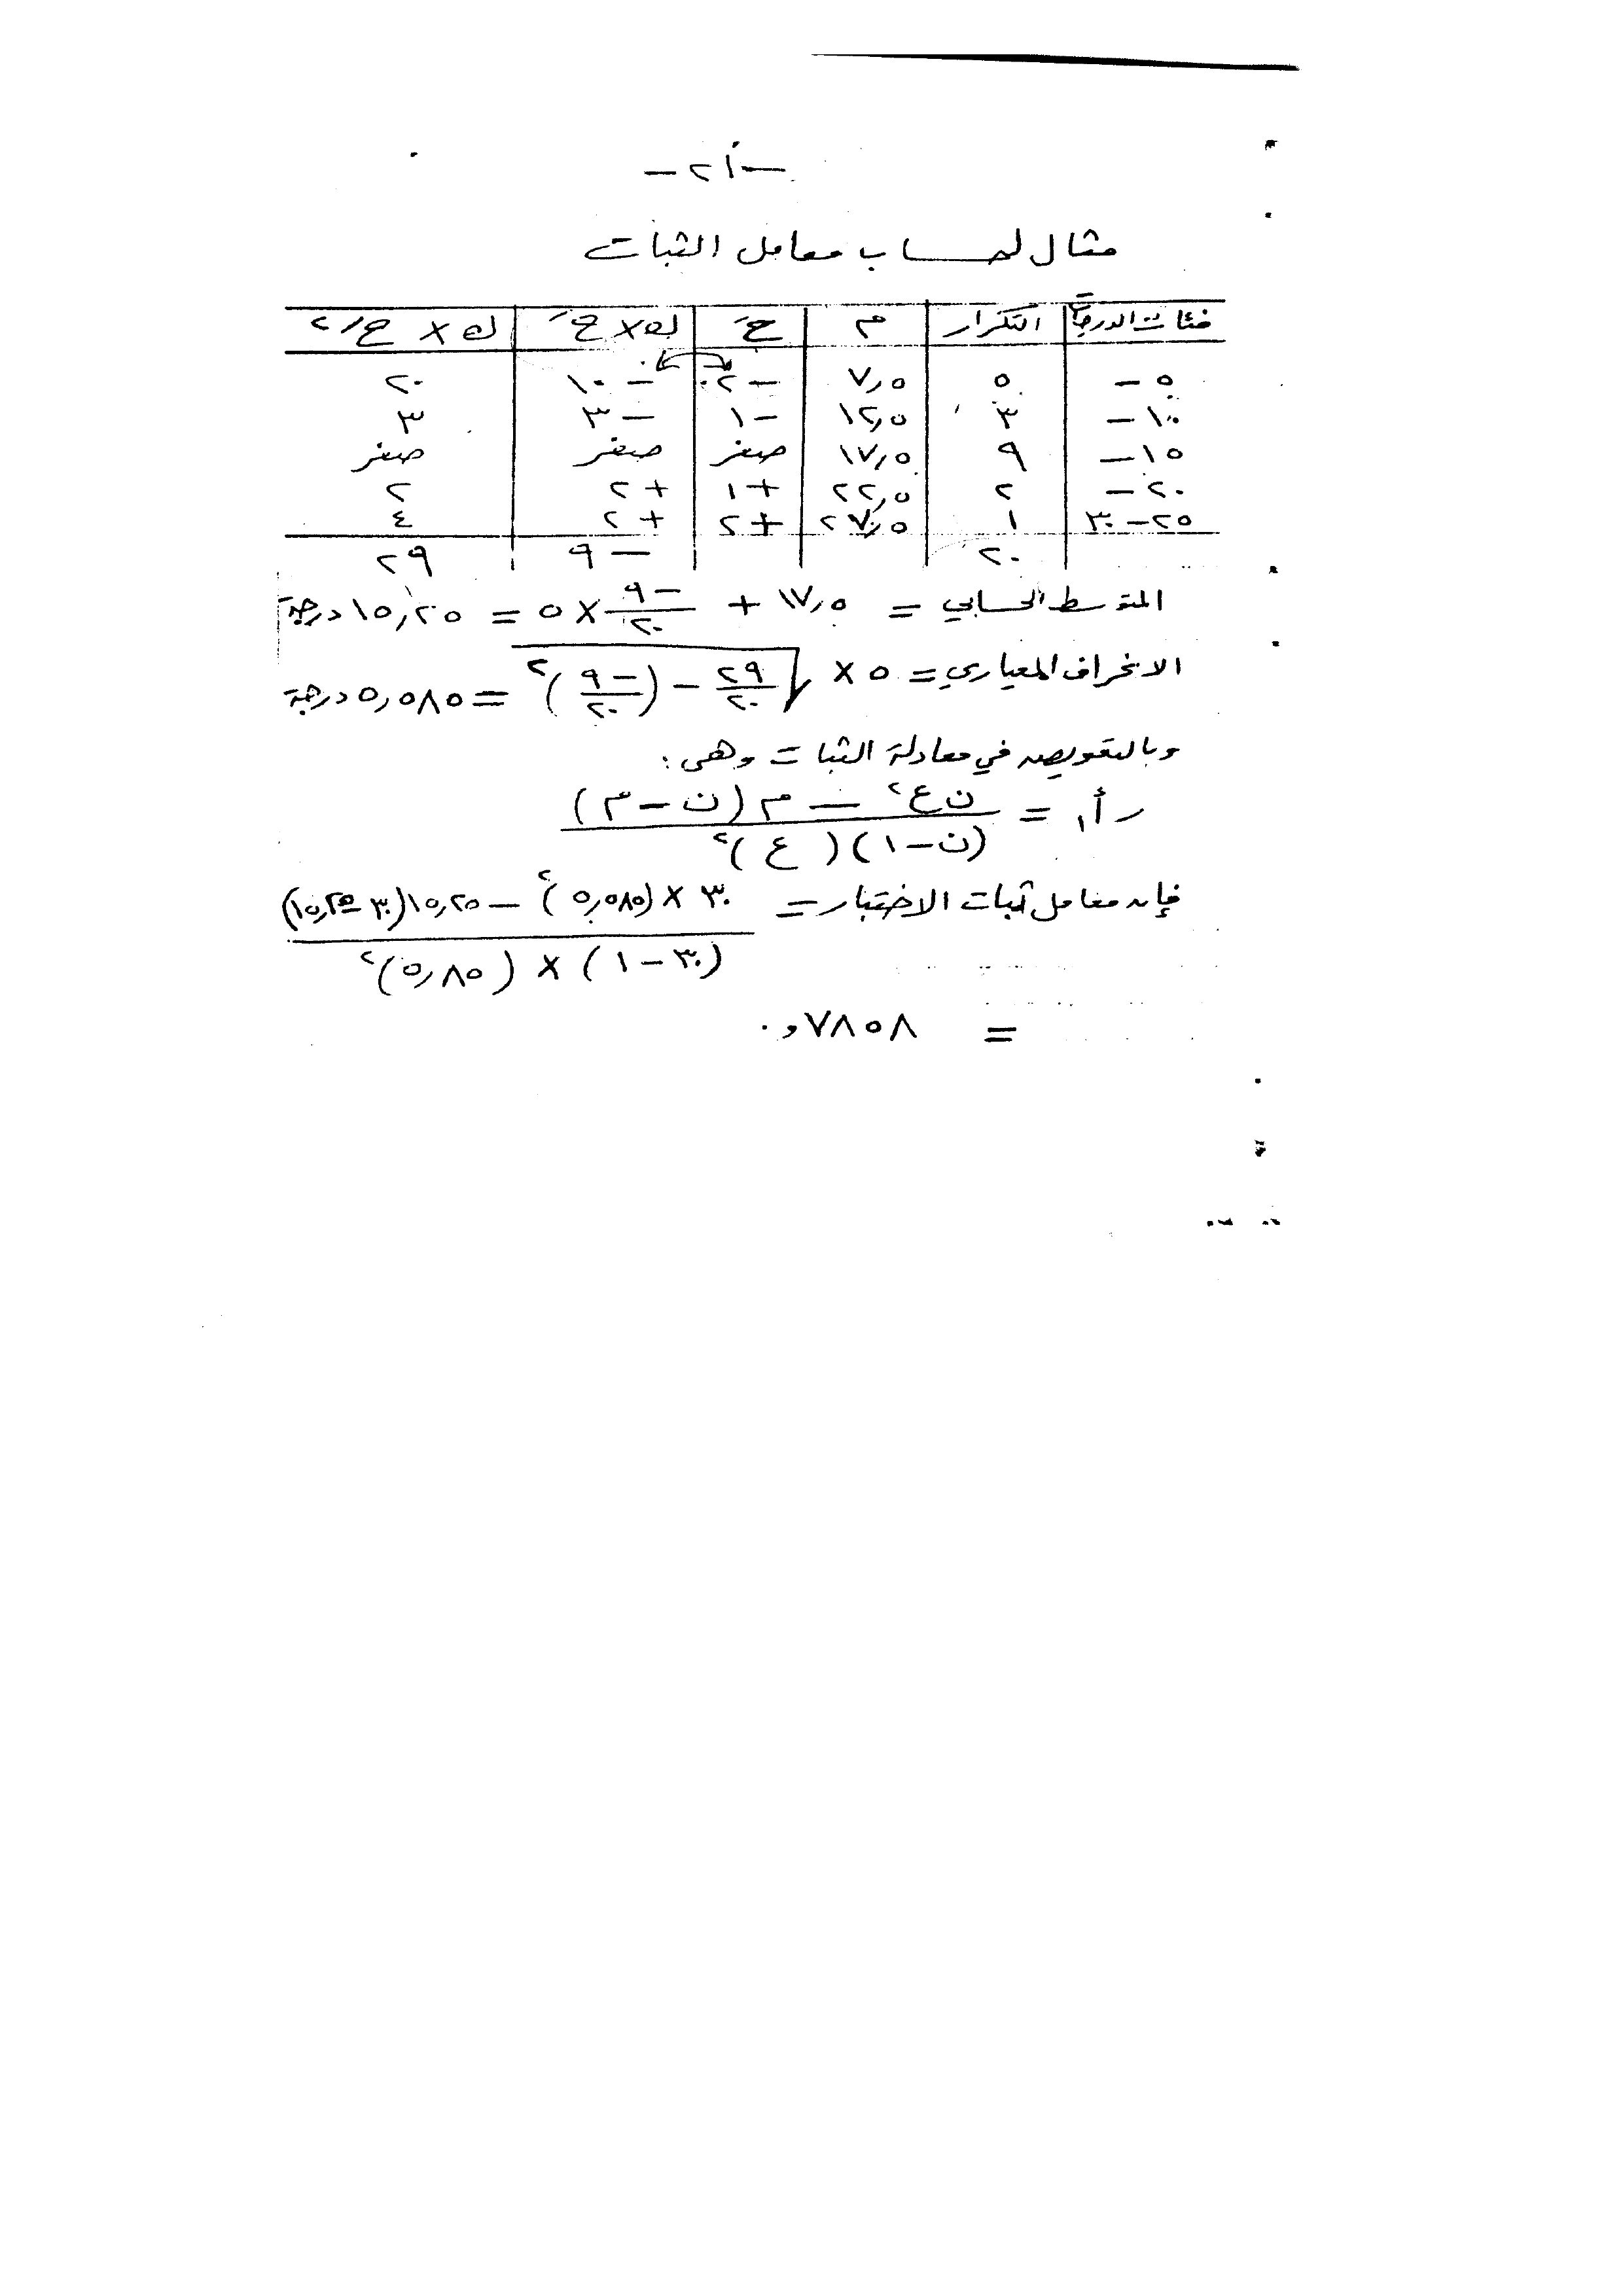 -٢١-
مثال لحساب معامل الثبات
فئات الدرجات التكرار م حَ ك×حَ ك × ح/٢
٥- ٥ ٧,٥ -٢ -١٠ ٢٠
١٠- ٣ ١٢,٥ -١ -٣ ٣
١٥- ٩ ١٧,٥ صفر صفر صفر
٢٠- ٢ ٢٢,٥ +١ +٢ ٢
٢٥-٣٠ ١ ٢٧,٥ +٢ +٢ ٤
٢٠ -٩ ٢٩
المتوسط الحسابي = ١٧,٥ + -٩/٢٠ × ٥ = ١٥,٢٥ درجة
الانحراف المعياري = ٥ × √(٢٩/٢٠ - (-٩/٢٠)²) = ٥,٥٨٥ درجة
وبالتعويض في معادلة الثبات وهى :
ر أ١ = ن ع² - م (ن - م)
(ن-١) (ع)²
فإن معامل ثبات الاختبار = ٣٠ × (٥,٥٨٥)² - ١٥,٢٥ (٣٠ - ١٥,٢٥)
(٣٠-١) × (٥,٨٥)²
= ٠,٧٨٥٨